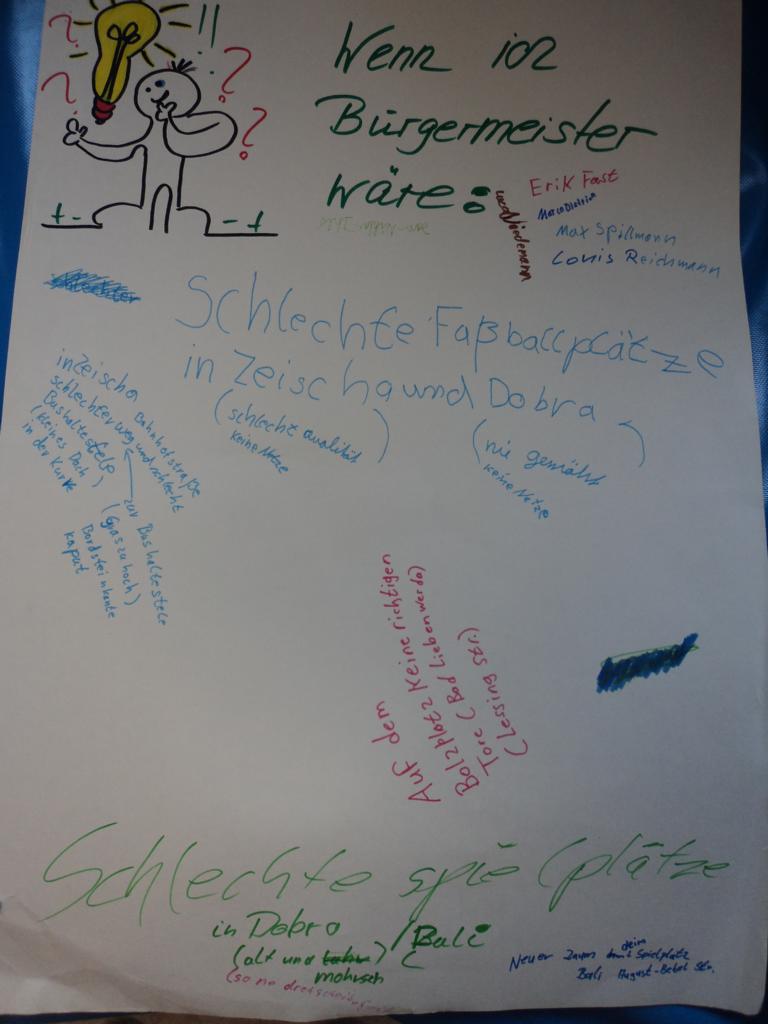 Wenn ich
Bürgermeister
wäre:
Erik Fast
Max Spillmann
Louis Reichmann
Niedemann
Schlechte Faßballplätze
in Zeischa und Dobra
(schlecht qualität)
keine Netze
(nie gemäht)
keine Netze
in Zeischa Bahnhofstraße
schlechter weg und schlecht
Bushaltestele
(kleines Dach)
in der Kurve
zur Bushaltestele
(Gras zu hoch)
Bordsteinkante
kaput
Auf dem
Bolzplatz keine richtigen
Tore (Bad Liebenwerda)
(Lessing Str.)
Schlechte spielplätze
in Dobra / Bali
(alt und )
morsch
(so ne
Neuer Zaun beim Spielplatz
Bali August-Bebel Str.